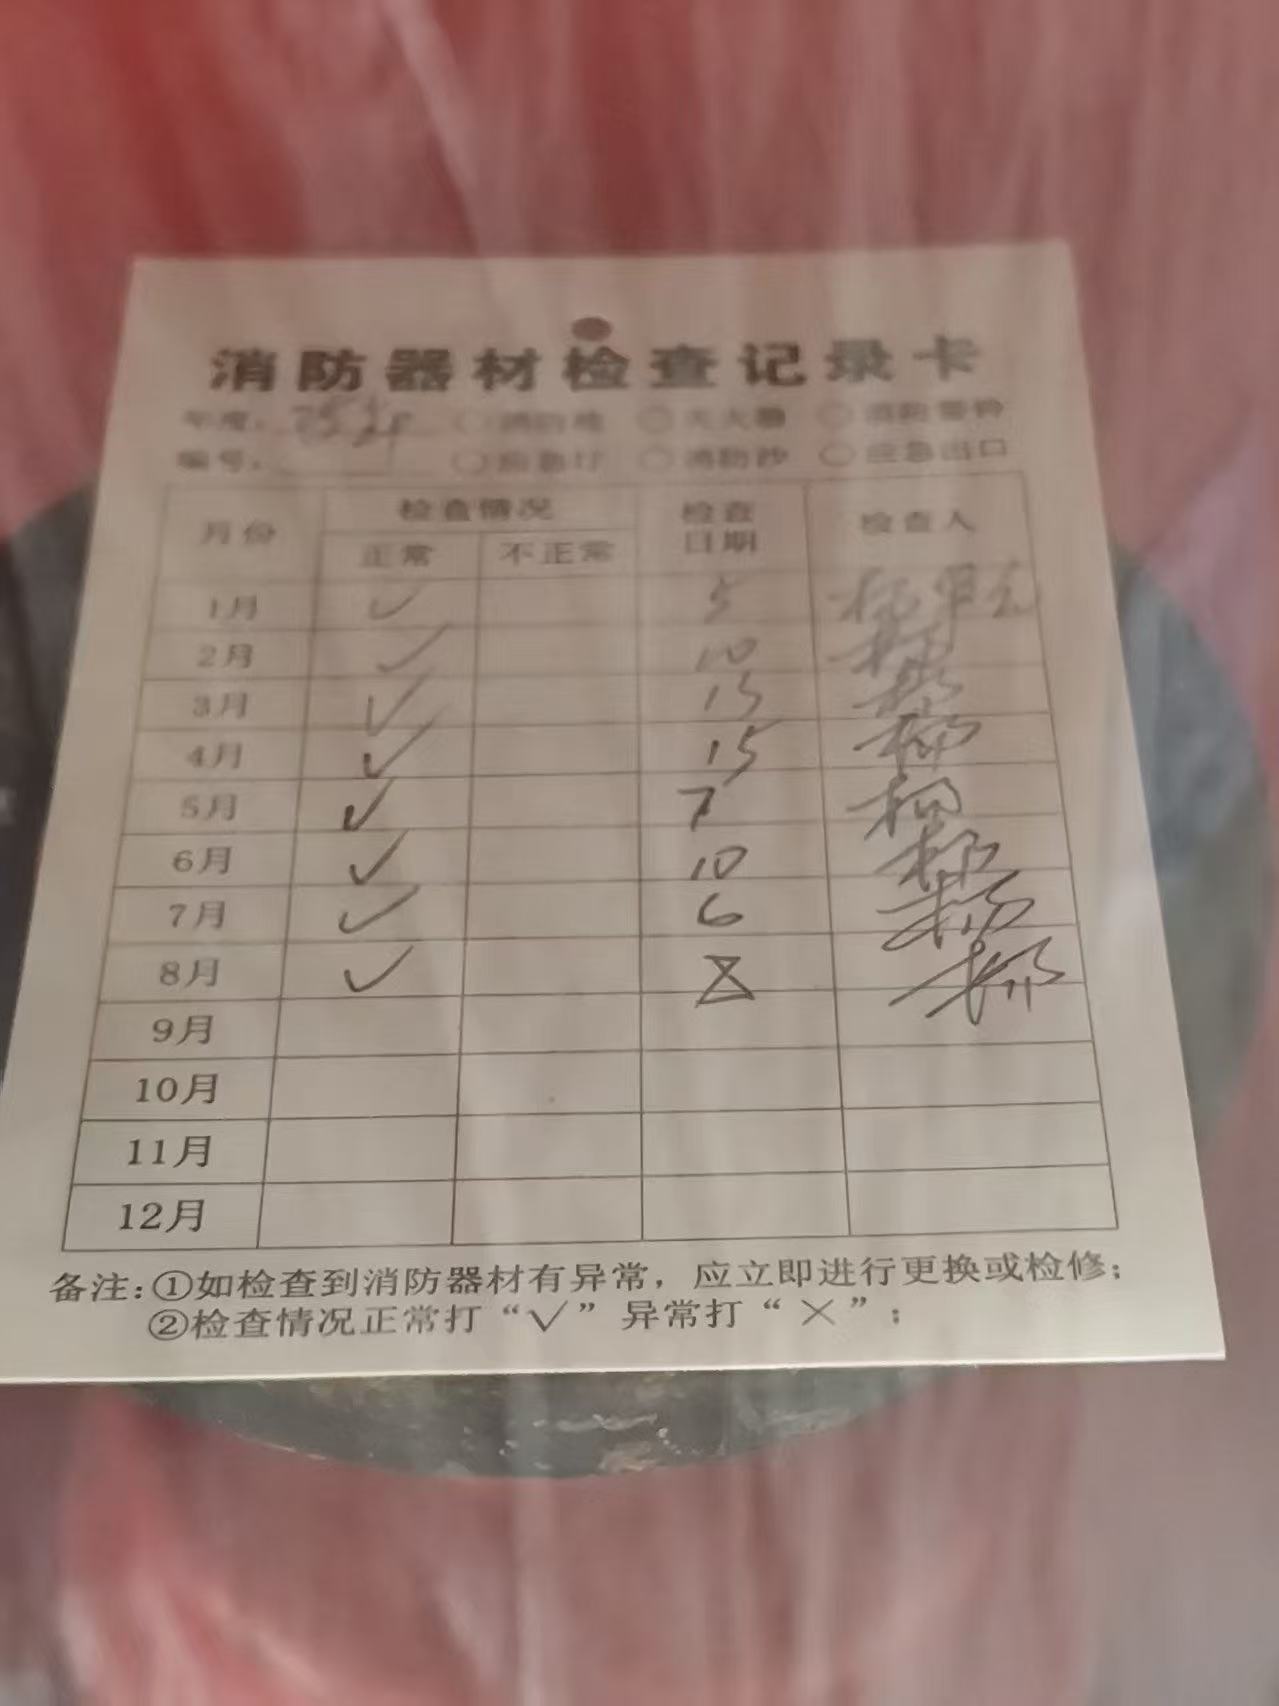 消防器材检查记录卡
年度: 25年 ○消防栓 ○灭火器 ○消防警铃
编号: ○应急灯 ○消防沙 ○应急出口
月份 检查情况 检查日期 检查人
正常 不正常
1月 ✓ 5
2月 ✓ 10
3月 ✓ 15
4月 ✓ 15
5月 ✓ 7
6月 ✓ 10
7月 ✓ 6
8月 ✓ 8
9月
10月
11月
12月
备注:①如检查到消防器材有异常，应立即进行更换或检修；
②检查情况正常打“✓”异常打“×”；